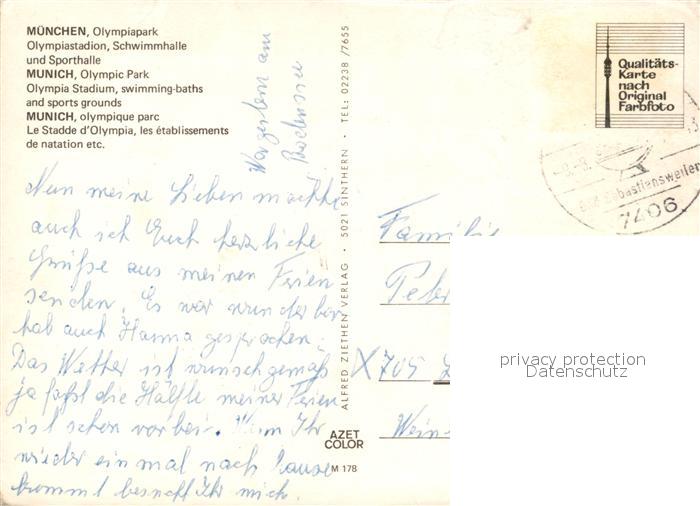 MÜNCHEN, Olympiapark
Olympiastadion, Schwimmhalle
und Sporthalle
MUNICH, Olympic Park
Olympia Stadium, swimming-baths
and sports grounds
MUNICH, olympique parc
Le Stadde d'Olympia, les établissements
de natation etc.
Vorgestern am
Bodensee
Nun meine Lieben möchte
auch ich Euch herzliche
Grüße aus meinen Ferien
senden. Es war wunderbar
hab auch Hanna gesprochen.
Das Wetter ist wunschgemäß
ja fast die Hälfte meiner Ferien
ist schon vorbei. Wenn Ihr
wieder einmal nach Hause
kommt besucht Ihr mich.
ALFRED ZIETHEN VERLAG · 5021 SINTHERN · TEL: 02238/7655
AZET
COLOR
M 178
Qualitäts-
Karte
nach
Original
Farbfoto
Sebastiansweiler
7406
Familie
Peter
X 705
Wein
privacy protection
Datenschutz